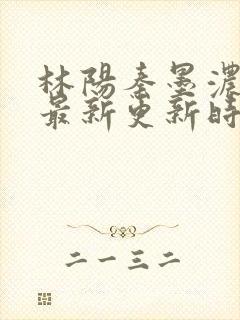 林陽秦墨濃
最新更新時
二一三二